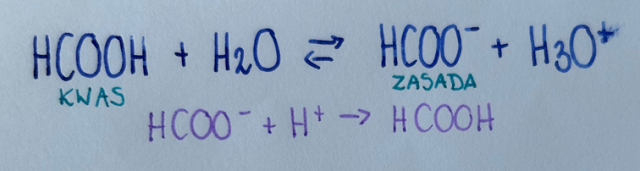 HCOOH + H₂O ⇌ HCOO⁻ + H₃O⁺
KWAS ZASADA
HCOO⁻ + H⁺ → HCOOH